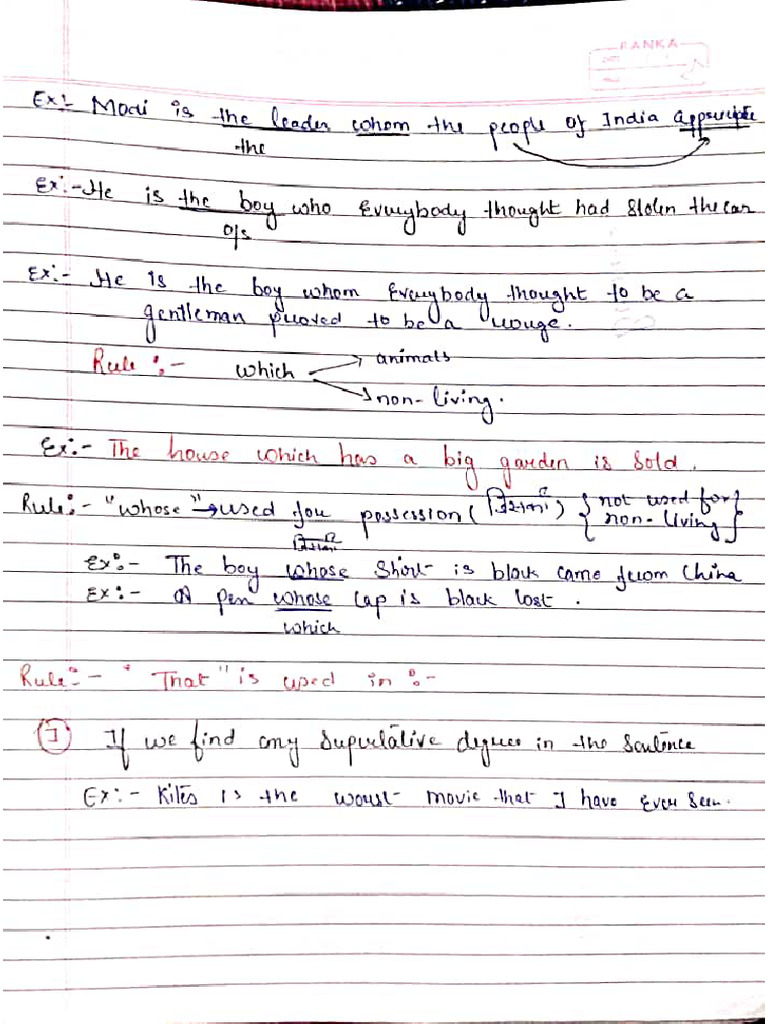 RANKA
Ex:- Modi is the leader whom the people of India
the
Ex:- He is the boy who Everybody thought had stolen the car
o/s
Ex:- He is the boy whom Everybody thought to be a
gentleman proved to be a rouge.
Rule :- which animals
non-living.
Ex:- The house which has a big garden is sold.
Rule:- "whose" → used for possession ( ) { not used for
non-living }
Ex:- The boy whose Shirt is black came from China
Ex:- A pen whose cap is black lost.
which
Rule:- "That" is used in :-
① If we find any superlative degree in the sentence
Ex:- Kites is the worst movie that I have Ever seen.